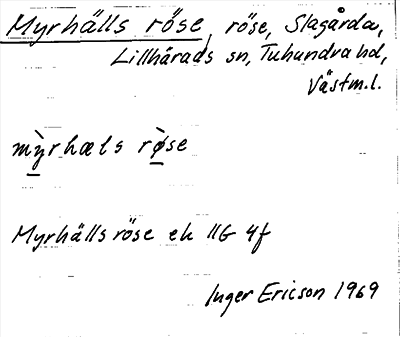 Myrhälls röse, röse, Slagårda,
Lillhärads sn, Tuhundra hd,
Västm.l.
mỳrhæls rø̀se
Myrhälls röse ek 11G 4f
Inger Ericson 1969